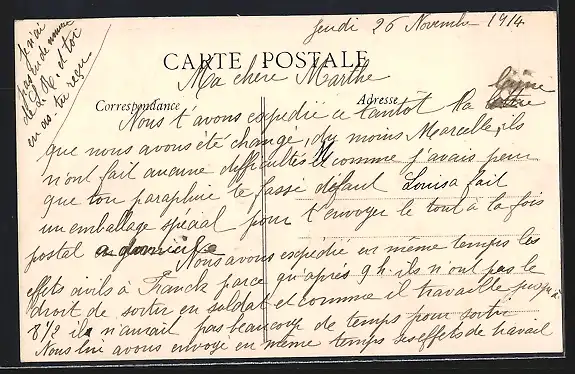 Jeudi 26 Novembre 1914
CARTE POSTALE
Ma chère Marthe
Correspondance
Adresse
Nous t'avons expédié ce tantôt la laine
que nous avons été changé, du moins Marcelle, ils
n'ont fait aucune difficultés et comme j'avais peur
que ton parapluie te fasse défaut Louisa fait
un emballage spécial pour t'envoyer le tout à la fois
postal a domicile
Nous avons expédié en même temps les
effets civils à Franck parce qu'après 9 h. ils n'ont pas le
droit de sortir en soldat et comme il travaille jusqu'à
8 1/2 ils n'aurait pas beaucoup de temps pour sortir
Nous lui avons envoyé en même temps ses effets de travail
J'ai
pas eu de nouvelle
de L. H. et toi
en as-tu reçu